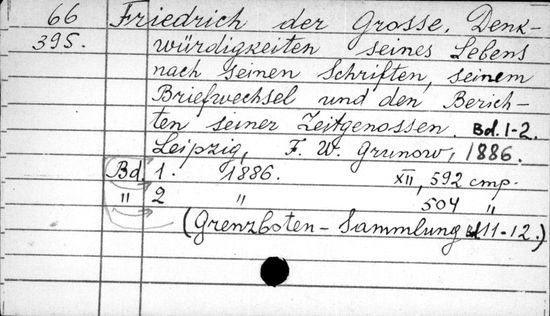 66 Friedrich der Grosse. Denk-
395. würdigkeiten seines Lebens
nach seinen Schriften, seinem
Briefwechsel und den Berich-
ten seiner Zeitgenossen. Bd. 1-2.
Leipzig, F. W. Grunow, 1886.
Bd. 1. 1886. XII, 592 cmp.
" 2 " 504 "
(Grenzboten-Sammlung 11-12.)